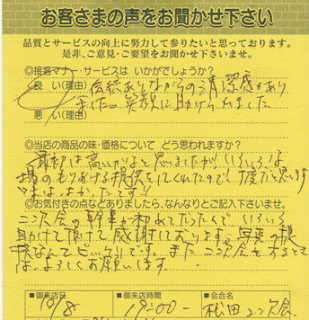 お客さまの声をお聞かせ下さい
品質とサービスの向上に努力して参りたいと思っております。
是非、ご意見・ご要望をお聞かせ下さいませ。
◎接客マナー・サービスは いかがでしょうか?
良 い(理由) 伝統ありながらの清潔感があり
ました。笑顔に助けられました
悪 い(理由)
◎当店の商品の味・価格について どう思われますか?
最初は高いかなと思いましたが、いろいろな
場のもりあげる提供をしてくれたので
味はよかったです!!
◎お気付きの点などありましたら、なんなりとご記入下さいませ。
二次会の幹事が初めてだったんで、いろいろ
助けて頂けて感謝しております。写真の
なんてビックリです。また二次会をするとき
は、よろしくお願いします。
■御来店日
■御来店時間
■会合名
10/8
19:00~
松田 二次会